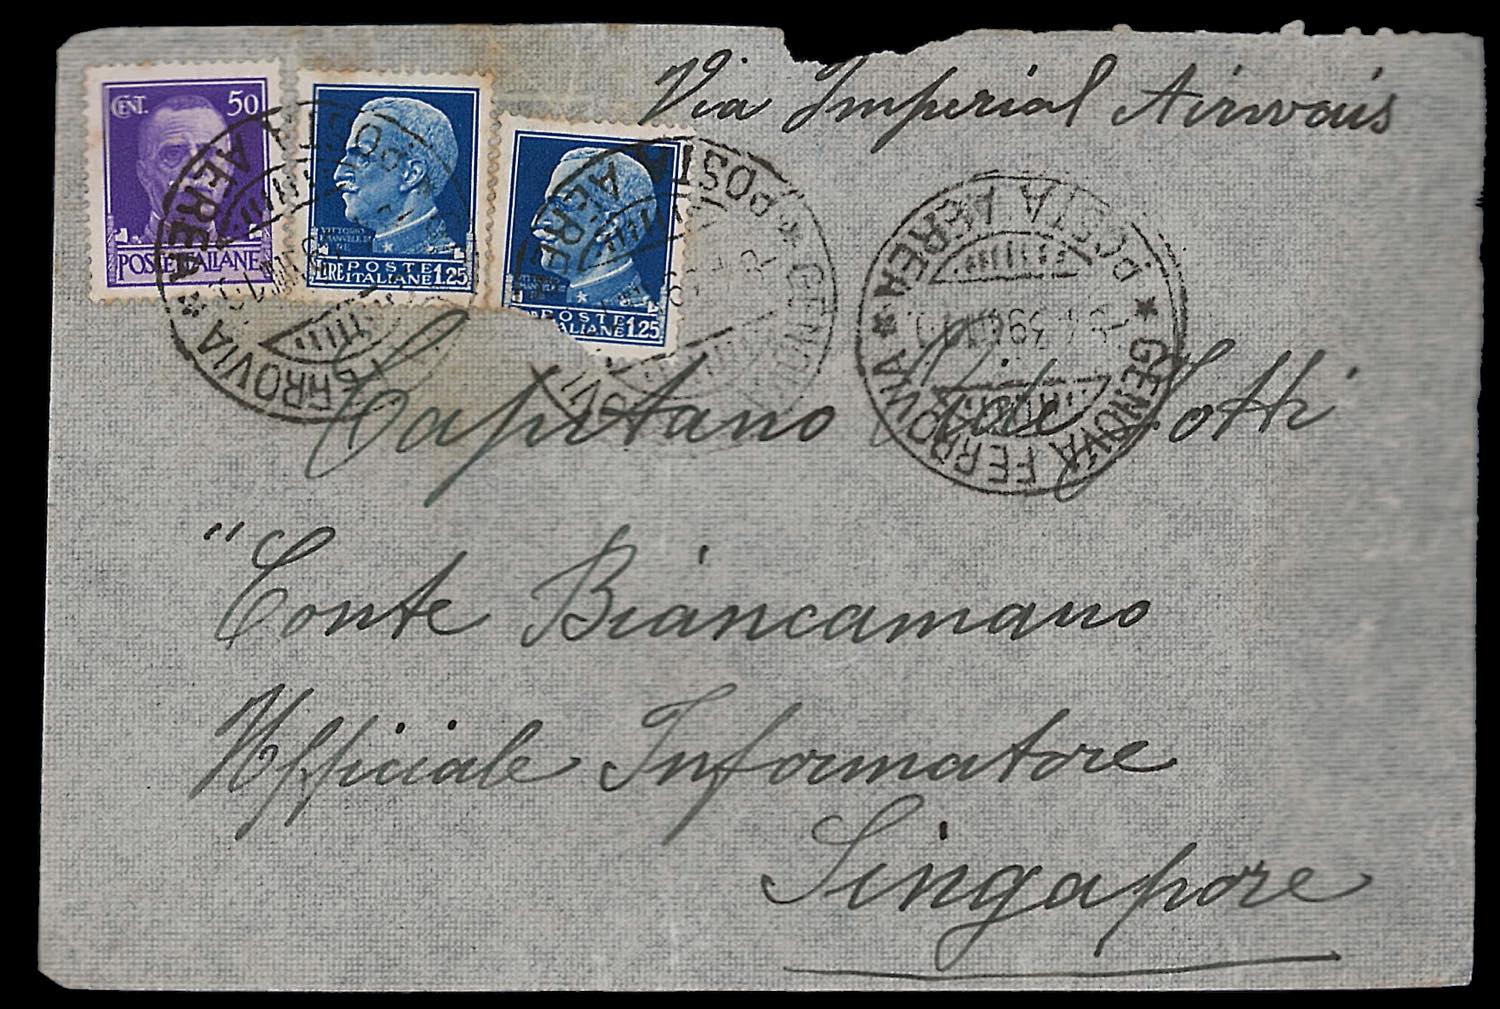 Via Imperial Airvais
CENT. 50
POSTE ITALIANE
VITTORIO
EMANUELE III
RE
LIRE POSTE ITALIANE 1.25
POSTE ITALIANE 1.25
GENOVA FERROVIA * POSTA AEREA *
* GENOVA * POSTA AEREA
* GENOVA FERROVIA * POSTA AEREA
39
Capitano Lotti
"Conte Biancamano
Ufficiale Informatore
Singapore